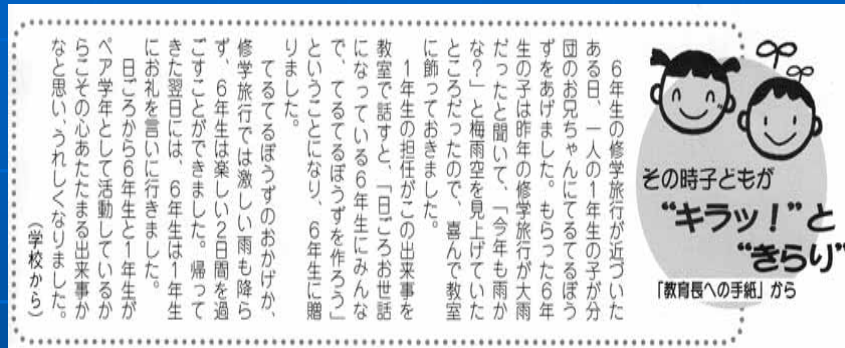 その時子どもが
“キラッ！”と
“きらり”
「教育長への手紙」から
６年生の修学旅行が近づいた
ある日、一人の１年生の子が分
団のお兄ちゃんにてるてるぼう
ずをあげました。もらった６年
生の子は昨年の修学旅行が大雨
だったと聞いて、「今年も雨か
な？」と梅雨空を見上げていた
ところだったので、喜んで教室
に飾っておきました。
１年生の担任がこの出来事を
教室で話すと、「日ごろお世話
になっている６年生にみんな
で、てるてるぼうずを作ろう」
ということになり、６年生に贈
りました。
てるてるぼうずのおかげか、
修学旅行では激しい雨も降ら
ず、６年生は楽しい２日間を過
ごすことができました。帰って
きた翌日には、６年生は１年生
にお礼を言いに行きました。
日ごろから６年生と１年生が
ペア学年として活動しているか
らこその心あたたまる出来事か
なと思い、うれしくなりました。
（学校から）